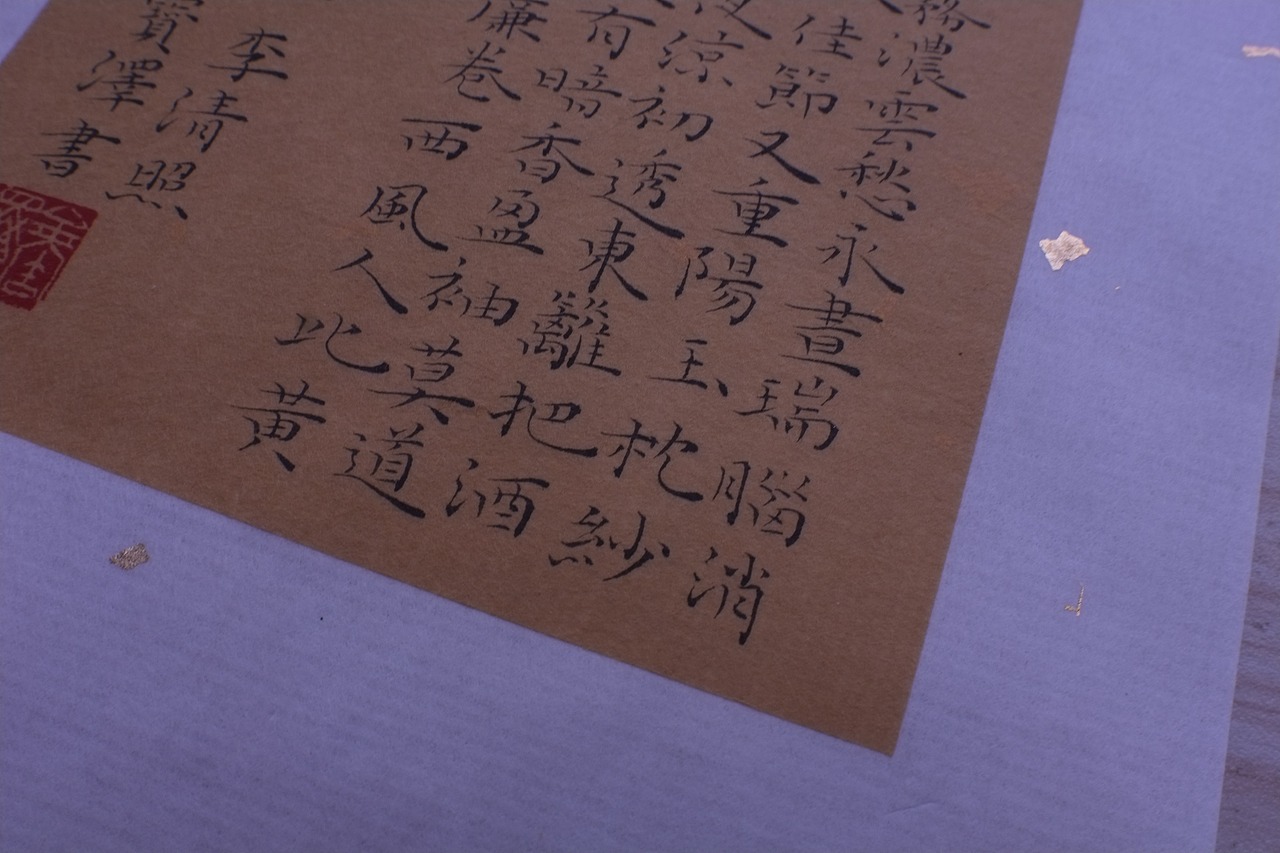 霧濃雲愁永晝瑞腦消
佳節又重陽玉枕紗
涼初透東籬把酒
有暗香盈袖莫道
卷西風人比黃
李清照
寶澤書